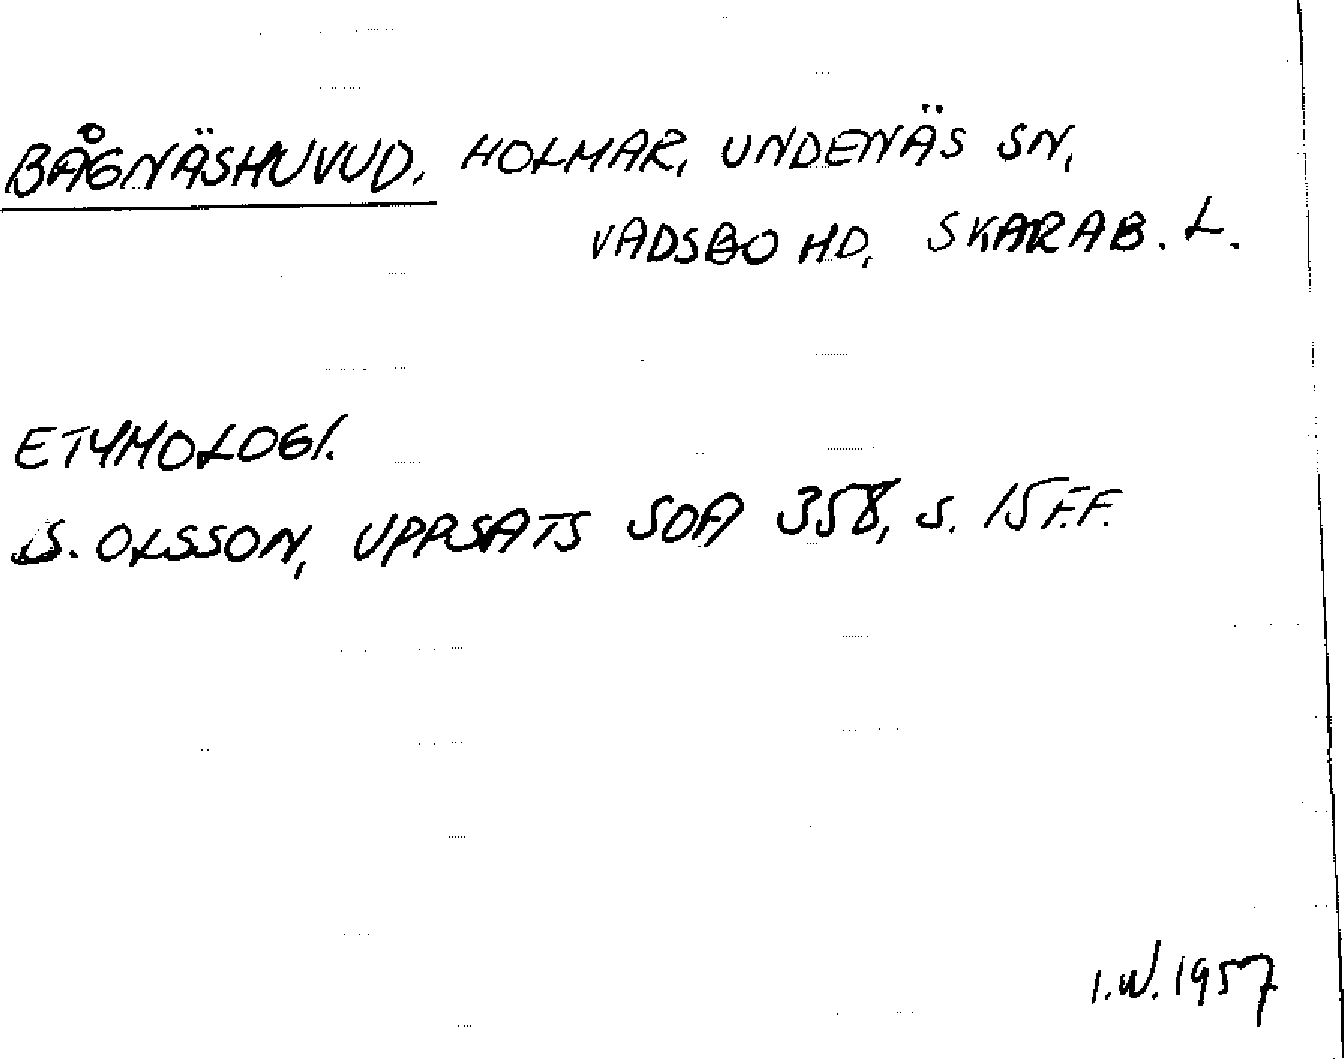 BÅGNÄSHUVUD. HOLMAR, UNDENÄS SN,
VADSBO HD, SKARAB. L.
ETYMOLOGI.
S. OLSSON, UPPSATS SOA 358, S. 15 F.F.
I.W. 1957